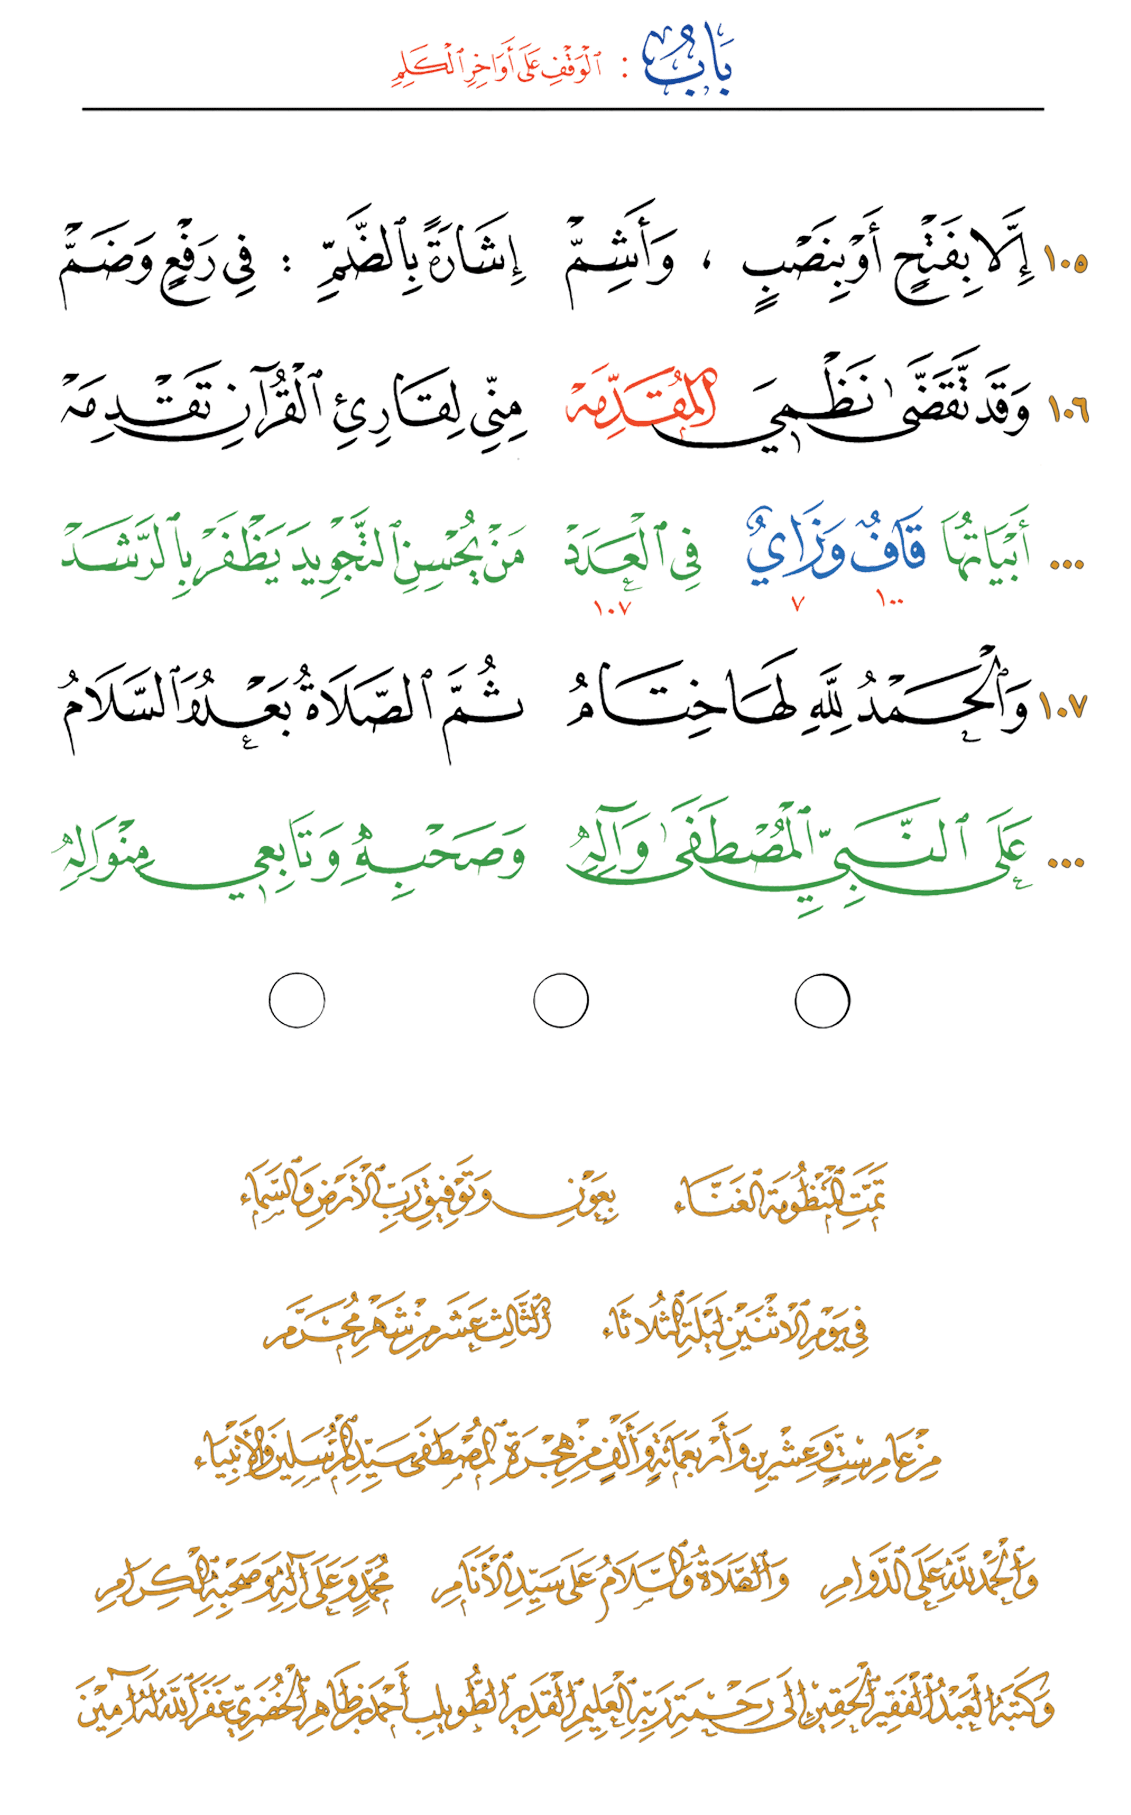 بَابُ : ٱلْوَقْفِ عَلَى أَوَاخِرِ ٱلْكَلِمِ
١٠٥ إِلَّا بِفَتْحٍ أَوْ بِنَصْبٍ ، وَأَشِمّْ إِشَارَةً بِٱلضَّمِّ : فِي رَفْعٍ وَضَمّْ
١٠٦ وَقَد تَّقَضَّىٰ نَظْمِيَ ٱلْمُقَدِّمَهْ مِنِّي لِقَارِئِ ٱلْقُرْآنِ تَقْدِمَهْ
... أَبْيَاتُهَا قَافٌ وَزَايٌ فِي ٱلْعَدَدْ مَنْ يُحْسِنِ ٱلتَّجْوِيدَ يَظْفَرْ بِٱلرَّشَدْ
١٠٠ ٧ ١٠٧
١٠٧ وَٱلْحَمْدُ لِلَّهِ لَهَا خِتَامُ ثُمَّ ٱلصَّلَاةُ بَعْدُ وَٱلسَّلَامُ
... عَلَى ٱلنَّبِيِّ ٱلْمُصْطَفَىٰ وَآلِهِ وَصَحْبِهِ وَتَابِعِي مِنْوَالِهِ
تَمَّتِ ٱلْمَنْظُومَةُ ٱلْغَنَّاء بِعَوْنِ وَتَوْفِيقِ رَبِّ ٱلْأَرْضِ وَٱلسَّمَاء
فِي يَوْمِ ٱلْاثْنَيْنِ لَيْلَةِ ٱلثُّلَاثَاء ٱلثَّالِث عَشَر مِنْ شَهْرِ مُحَرَّم
مِنْ عَامِ سِتٍّ وَعِشْرِين وَأَرْبَعِمَائَةٍ وَأَلْفٍ مِنْ هِجْرَةِ ٱلْمُصْطَفَى سَيِّدِ ٱلْمُرْسَلِينَ وَٱلْأَنْبِيَاء
وَٱلْحَمْدُ لِلَّهِ عَلَى ٱلدَّوَام وَٱلصَّلَاةُ وَٱلسَّلَامُ عَلَى سَيِّدِ ٱلْأَنَام مُحَمَّدٍ وَعَلَى آلِهِ وَصَحْبِهِ ٱلْكِرَام
وَكَتَبَهُ ٱلْعَبْدُ ٱلْفَقِيرُ ٱلْحَقِيرُ إِلَى رَحْمَةِ رَبِّهِ ٱلْعَلِيمِ ٱلْقَدِيرِ ٱلطُّوَيْلِب أَحْمَد بْن طَاهِر ٱلْخُضَرِيّ غَفَرَ ٱللَّهُ لَهُ آمِينَ